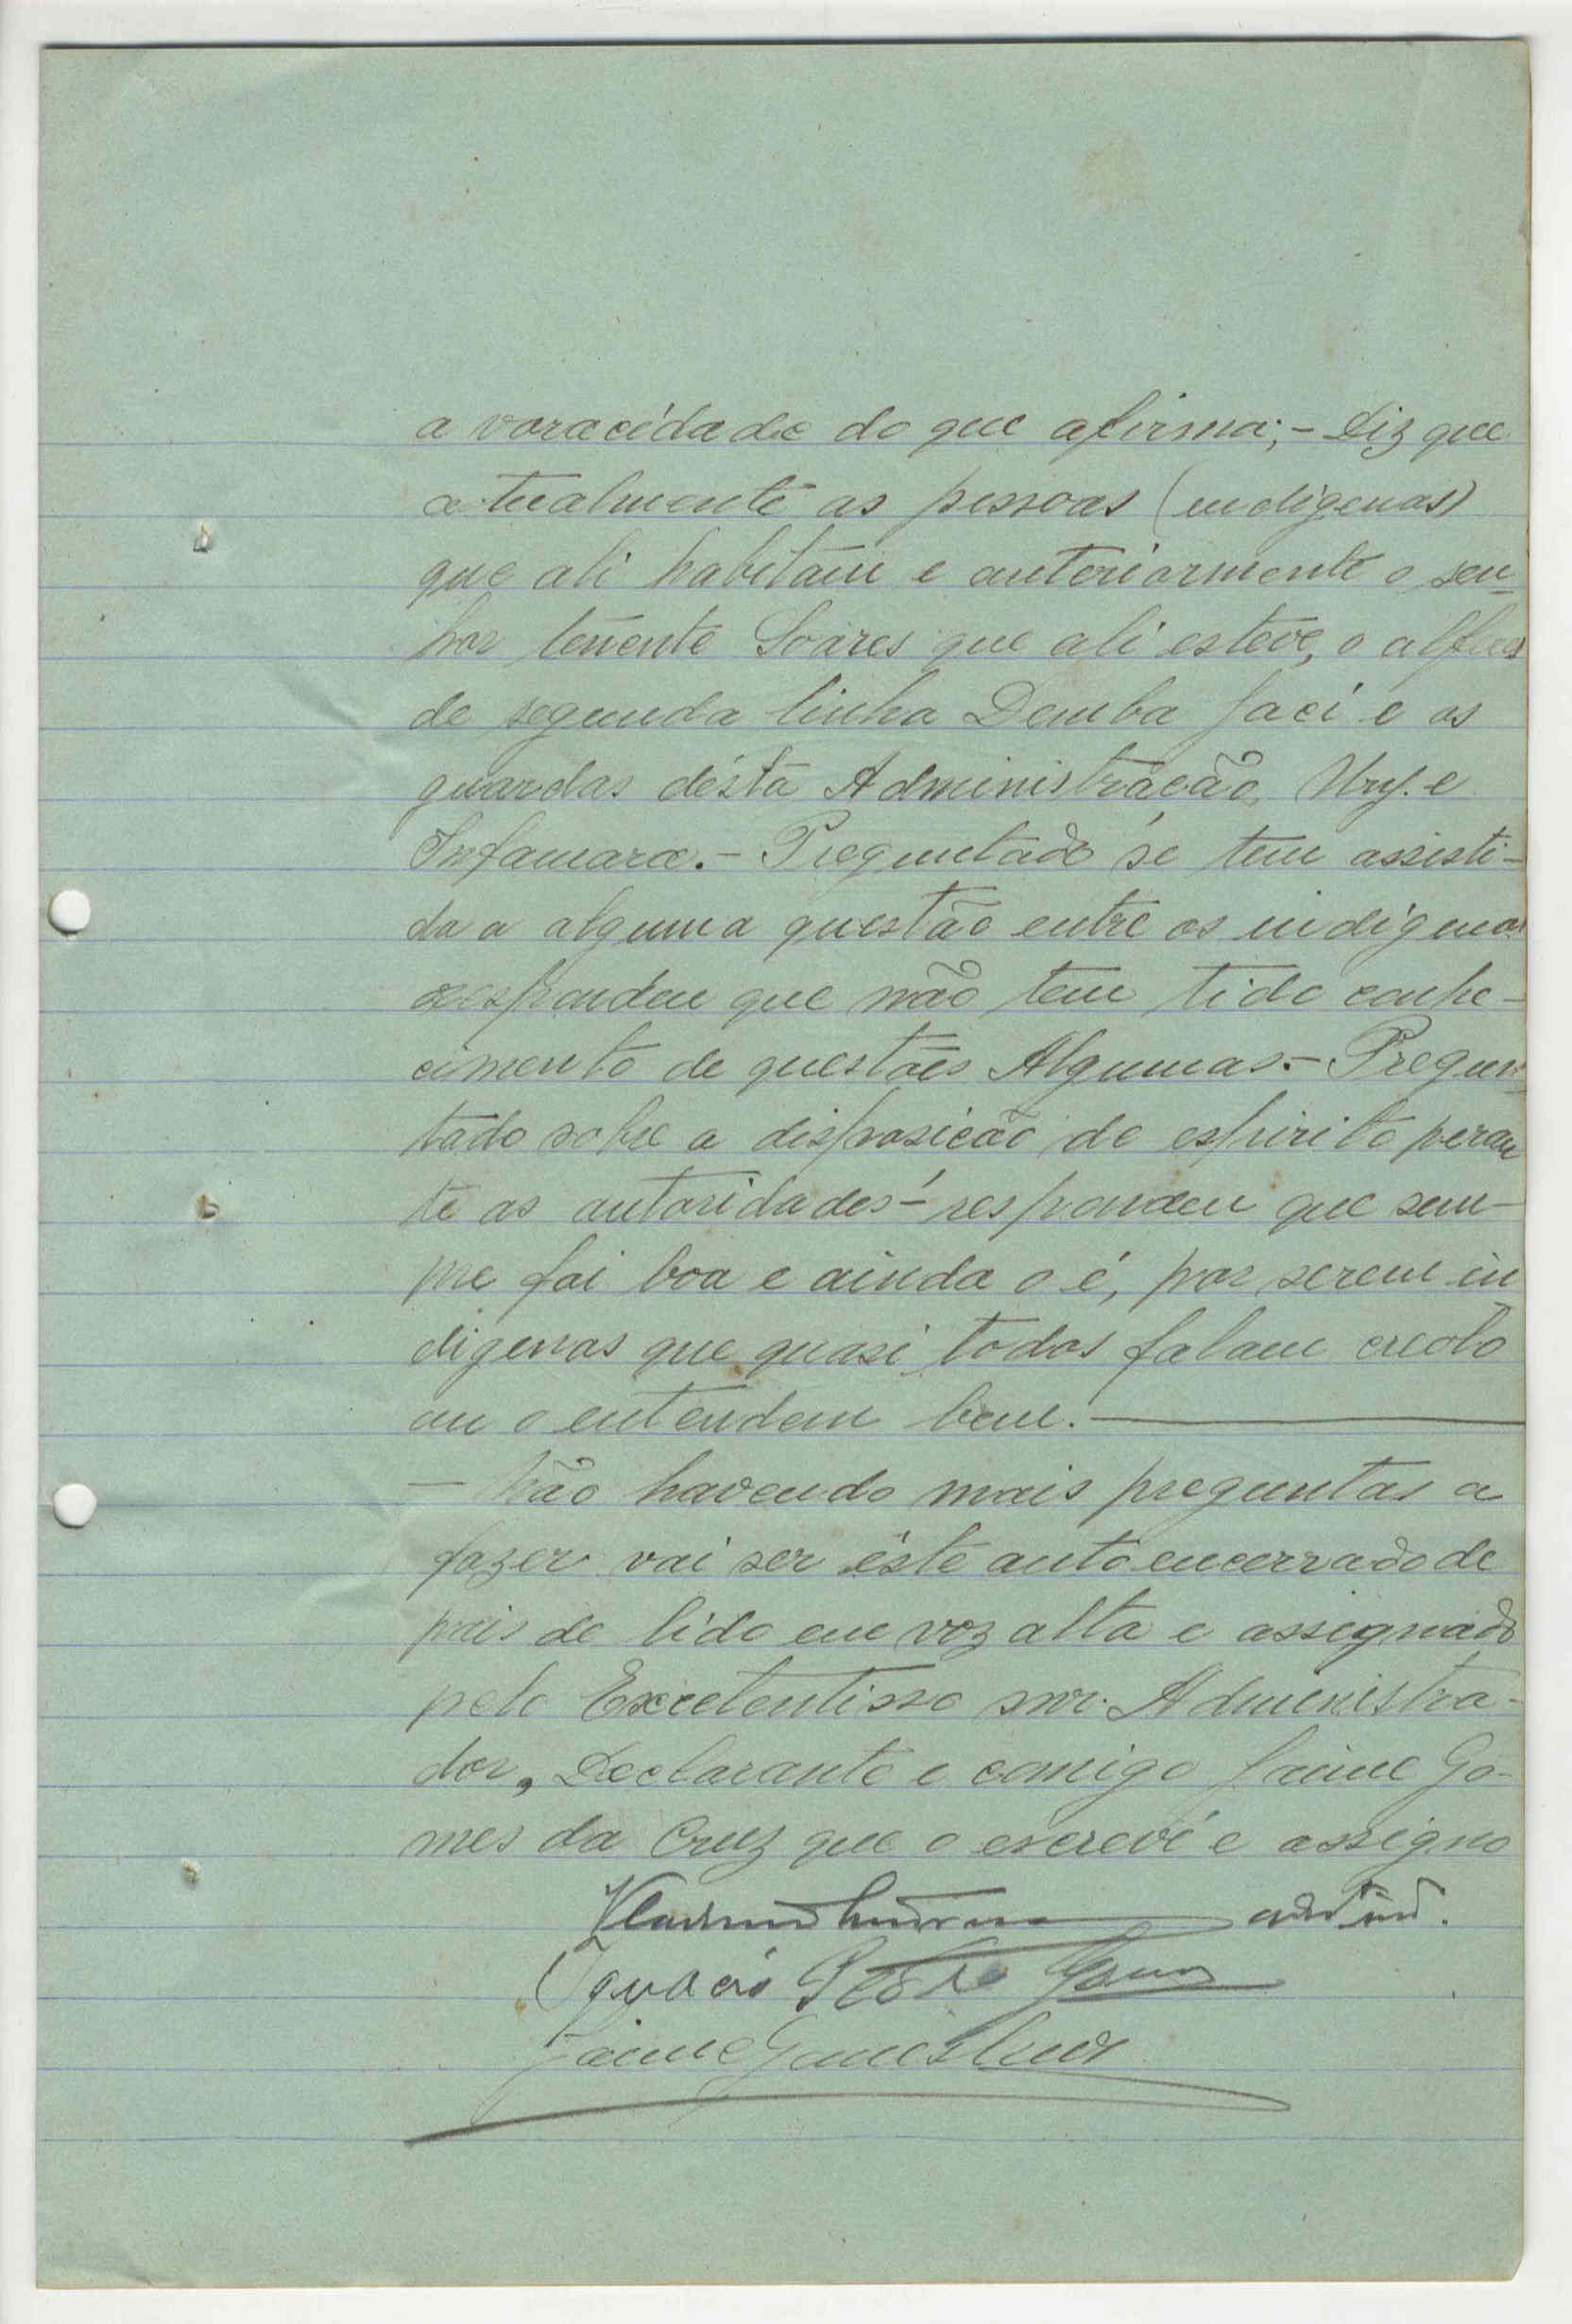 a voracidade do que afirma;- Diz que
atualmente as pessoas (indigenas)
que ali habitam e anteriormente o sen-
hor tenente Soares que ali esteve, o alferes
de segunda linha Demba Jaci e os
guardas désta Administração, e
Infamara.- Preguntado se tem assisti-
da a alguma questão entre os indigenas
respondeu que não tem tido conhe-
cimento de questões Algumas.- Pregun-
tado sobre a disposição de espirito peran
te as autoridades- respondeu que sem-
pre foi boa e ainda o é, por serem in
digenas que quasi todos falam creolo
ou o entendem bem.-
- Não havendo mais preguntas a
fazer vai ser éste auto encerrado de
pois de lido em voz alta e assignado
pelo Excelentisso snr. Administra-
dor, Declarante e comigo Jaime Go-
mes da Cruz que o escreví e assigno
Ignacio Gomes
Jaime Gomes Cruz